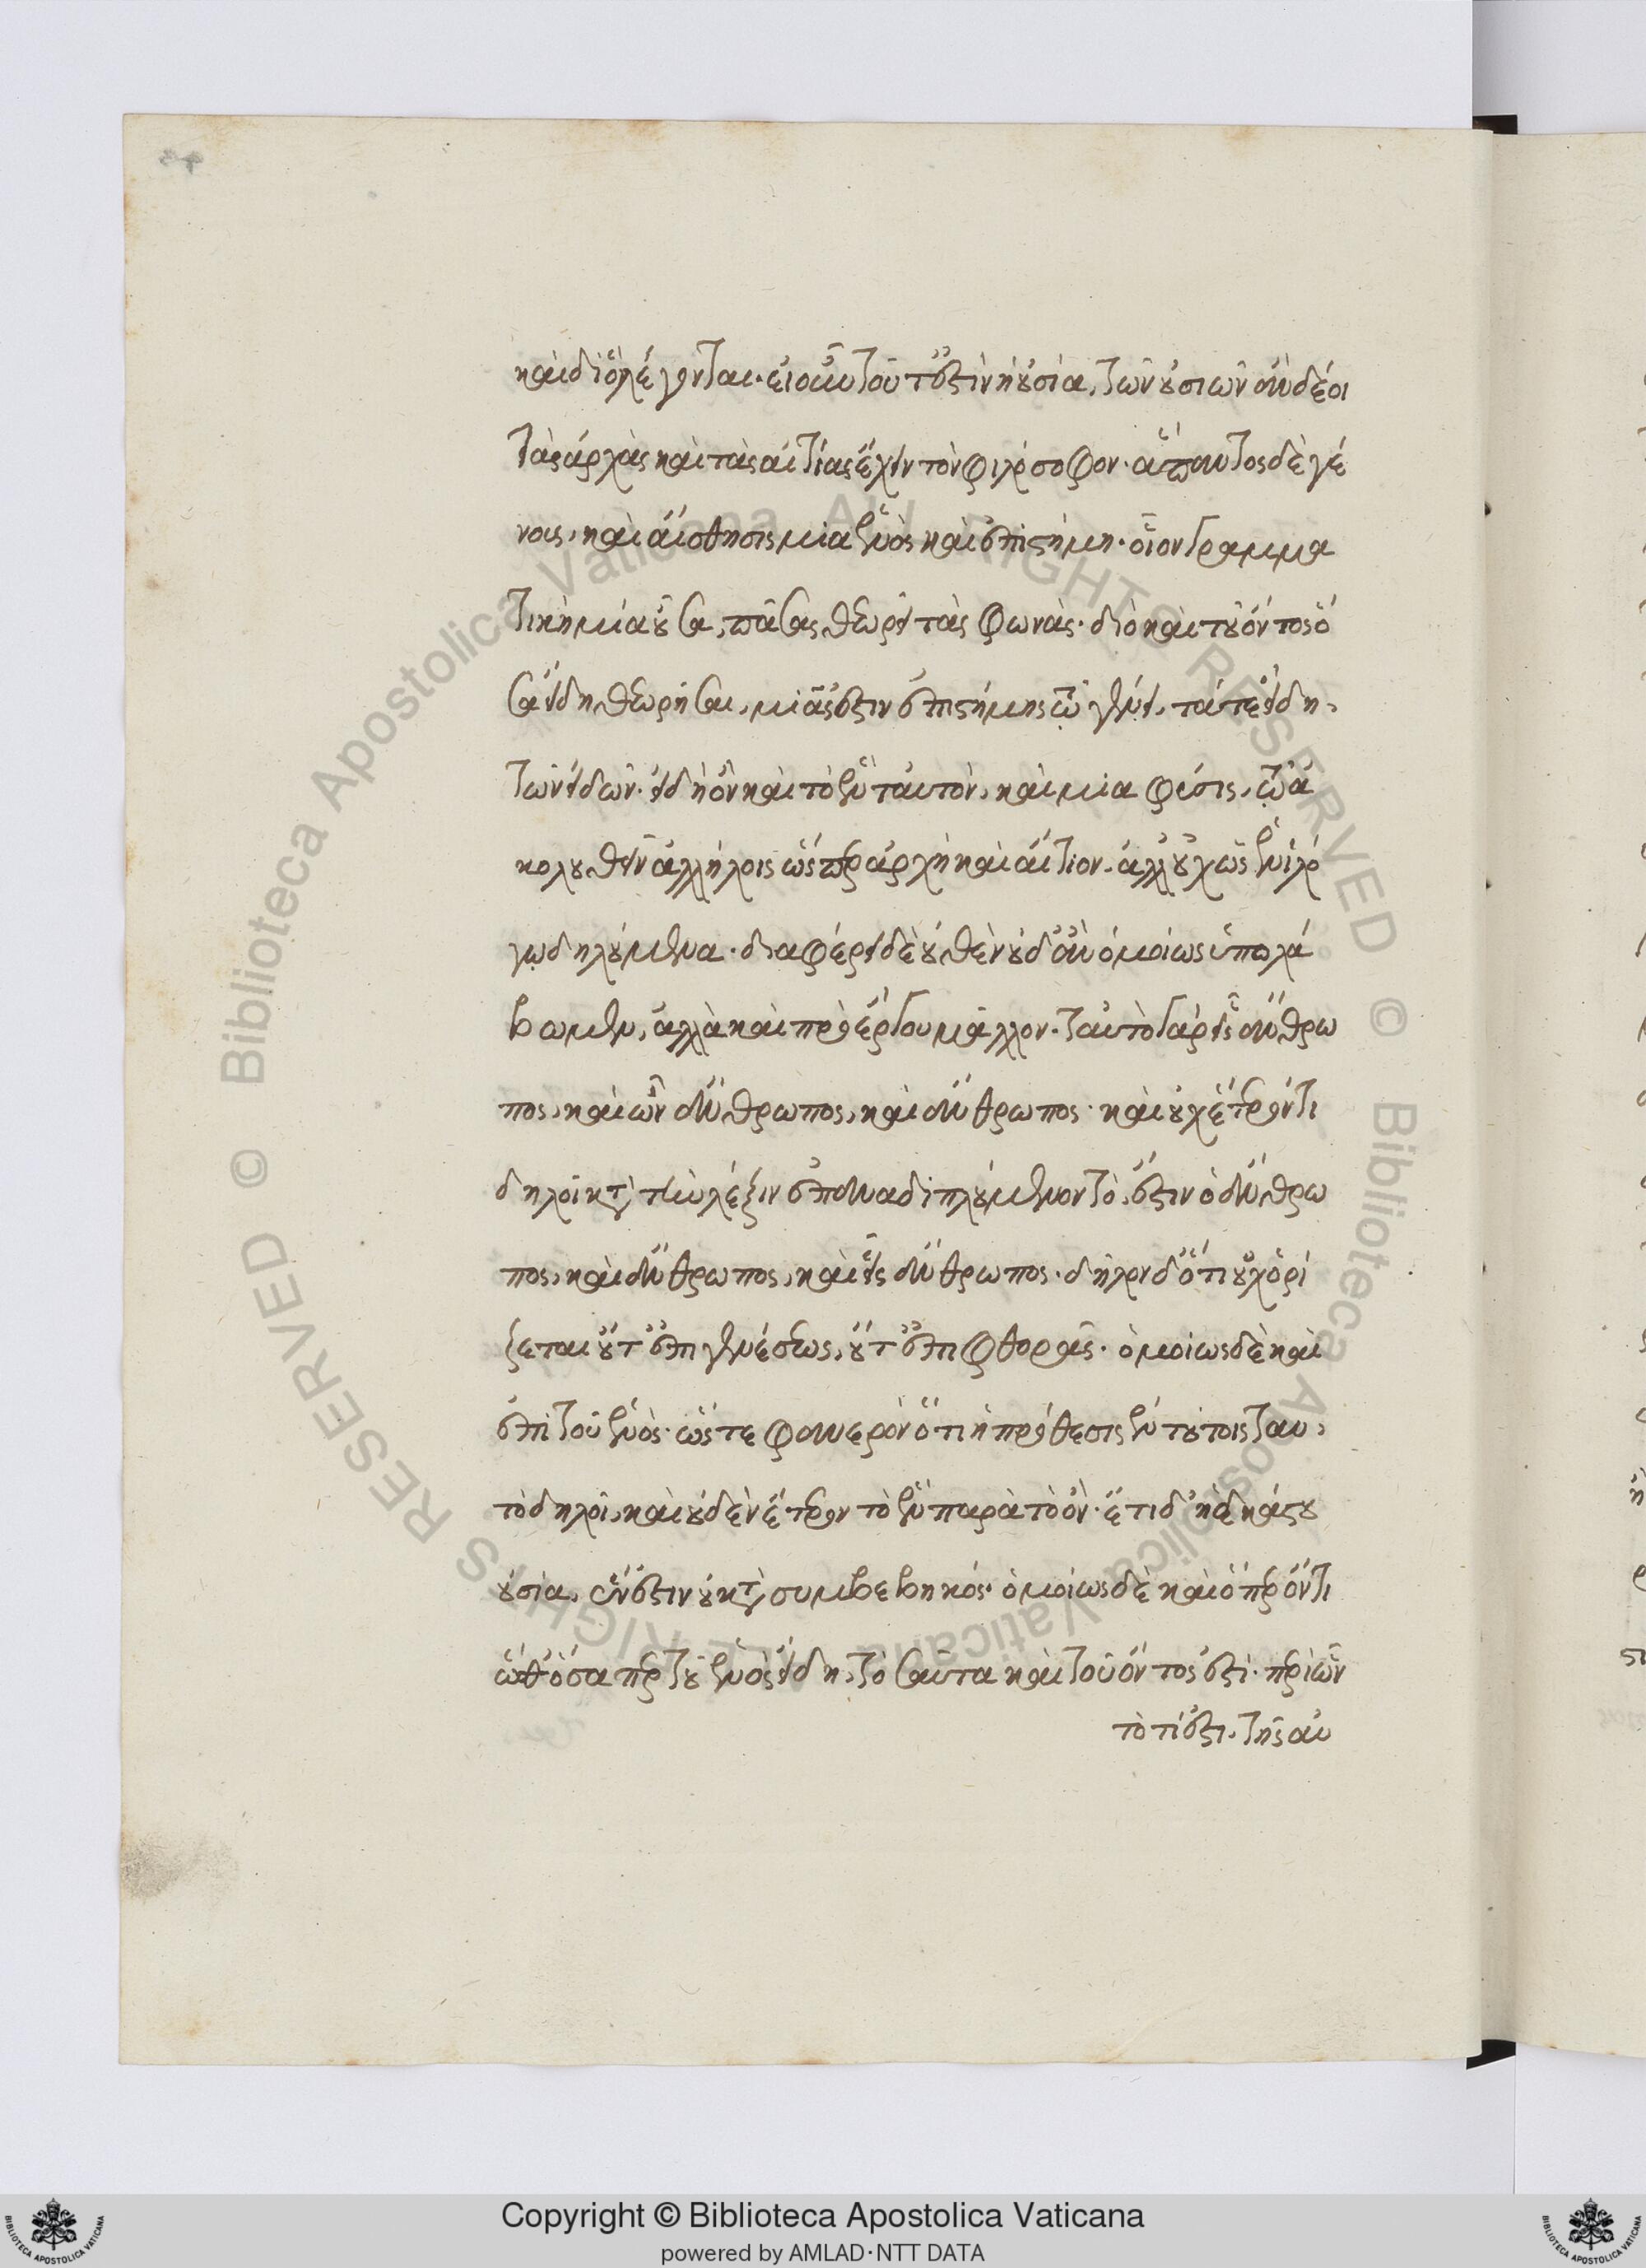 καὶ δι' ὃ λέγονται. εἰ οὖν τοῦτ' ἐστὶν ἡ οὐσία, τῶν οὐσιῶν ἂν δέοι
τὰς ἀρχὰς καὶ τὰς αἰτίας ἔχειν τὸν φιλόσοφον. ἅπαντος δὲ γέ
νους, καὶ αἴσθησις μία ἑνὸς καὶ ἐπιστήμη. οἷον γραμμα
τικὴ μία οὖσα, πάσας θεωρεῖ τὰς φωνάς. διὸ καὶ τοῦ ὄντος ὅ
σα εἴδη θεωρῆσαι, μιᾶς ἐστιν ἐπιστήμης τῷ γένει, τά τε εἴδη,
τῶν εἰδῶν. εἰ δὴ ὂν καὶ τὸ ἓν ταυτὸν, καὶ μία φύσις, τῷ ἀ
κολουθεῖν ἀλλήλοις ὥσπερ ἀρχὴ καὶ αἴτιον. ἀλλ' οὐχ ὡς ἑνὶ λό
γῳ δηλούμενα. διαφέρει δὲ οὐθὲν οὐδ' ἂν ὁμοίως ὑπολά
βωμεν, ἀλλὰ καὶ πρὸ ἔργου μᾶλλον. ταὐτὸ γὰρ εἷς ἄνθρω
πος, καὶ ὢν ἄνθρωπος, καὶ ἄνθρωπος. καὶ οὐχ ἕτερόν τι
δηλοῖ κατὰ τὴν λέξιν ἐπαναδιπλούμενον τὸ, ἔστιν ὁ ἄνθρω
πος, καὶ ἄνθρωπος, καὶ εἷς ἄνθρωπος. δῆλον δ' ὅτι οὐ χωρί
ζεται οὔτ' ἐπὶ γενέσεως, οὔτ' ἐπὶ φθορᾶς. ὁμοίως δὲ καὶ
ἐπὶ τοῦ ἑνός. ὥστε φανερὸν ὅτι ἡ πρόθεσις ἐν τούτοις ταυ,
τὸ δηλοῖ, καὶ οὐδὲν ἕτερον τὸ ἓν παρὰ τὸ ὄν. ἔτι δ' ἡ ἑκάστου
οὐσία, ἕν ἐστιν οὐ κατὰ συμβεβηκός. ὁμοίως δὲ καὶ ὅπερ ὄν τι
ὥσθ' ὅσα περ τοῦ ἑνὸς εἴδη, τοσαῦτα καὶ τοῦ ὄντος ἐστί. περὶ ὧν
τὸ τί ἐστι. τῆς αὐ
Copyright © Biblioteca Apostolica Vaticana
powered by AMLAD·NTT DATA